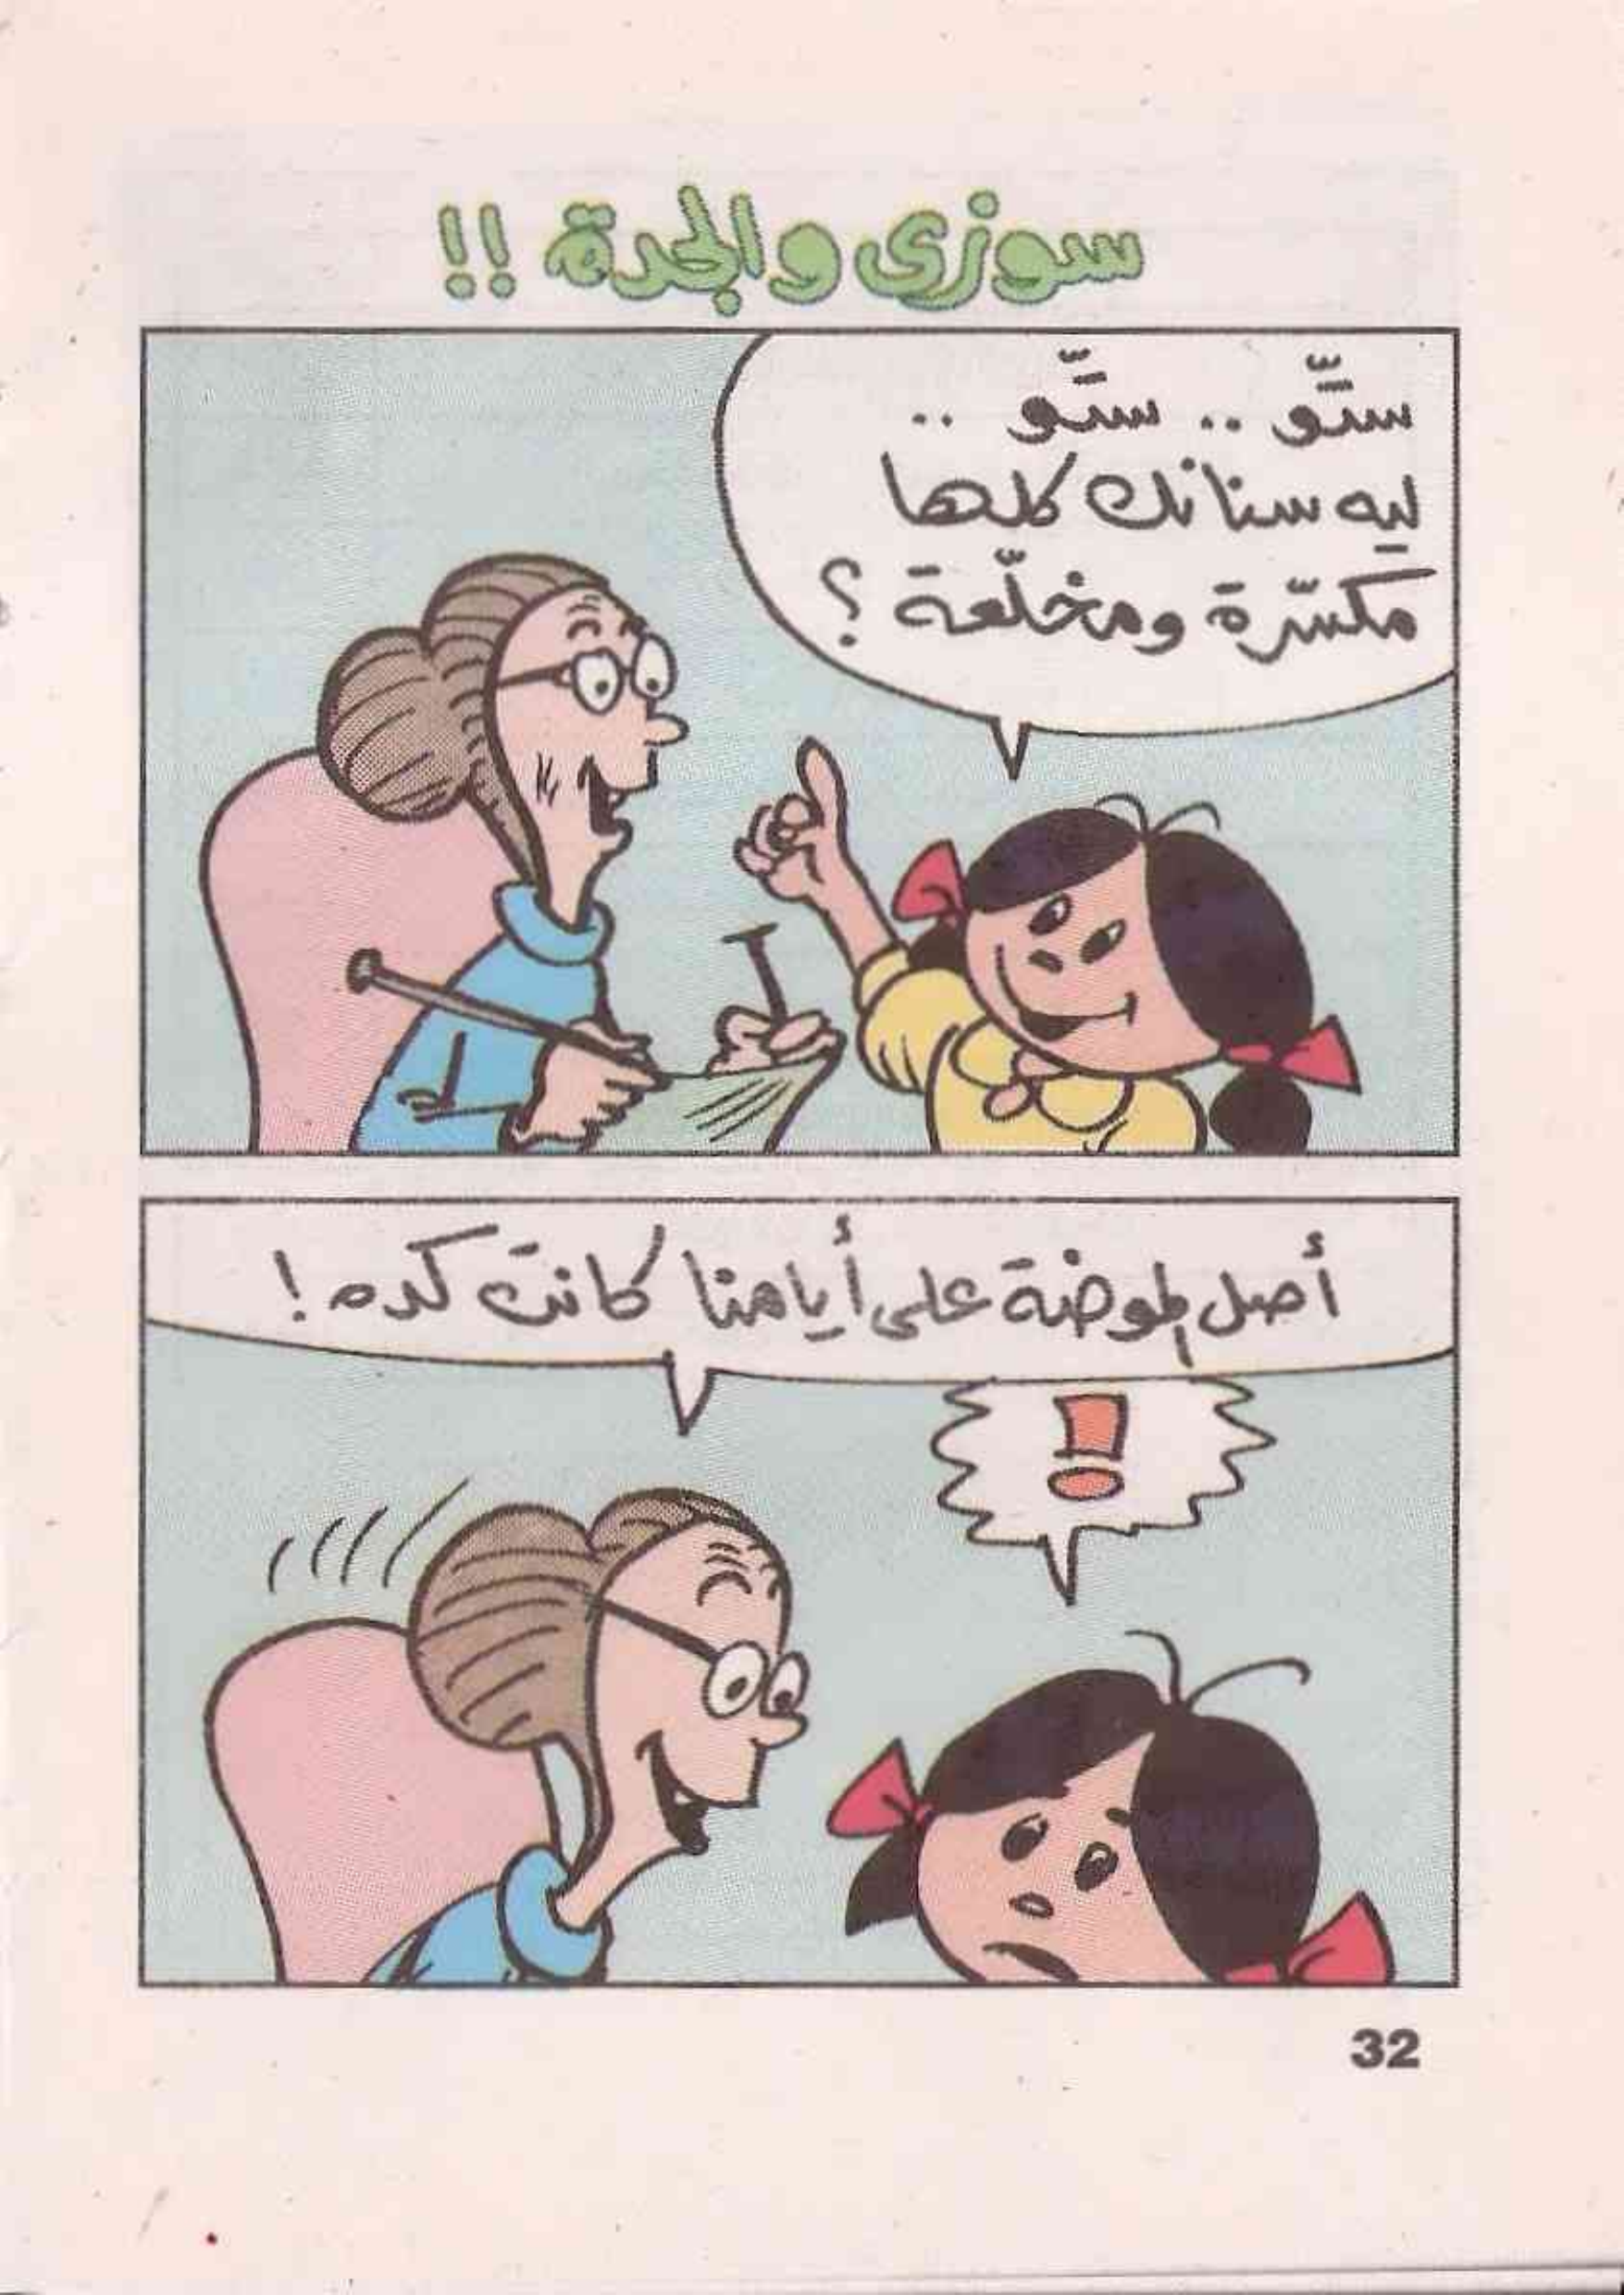 سوزى والجدة !!
ستّو .. ستّو ..
ليه سنانك كلها
مكسّرة ومخلّعة ؟
أصل الموضة على أيامنا كانت كده !
!
32